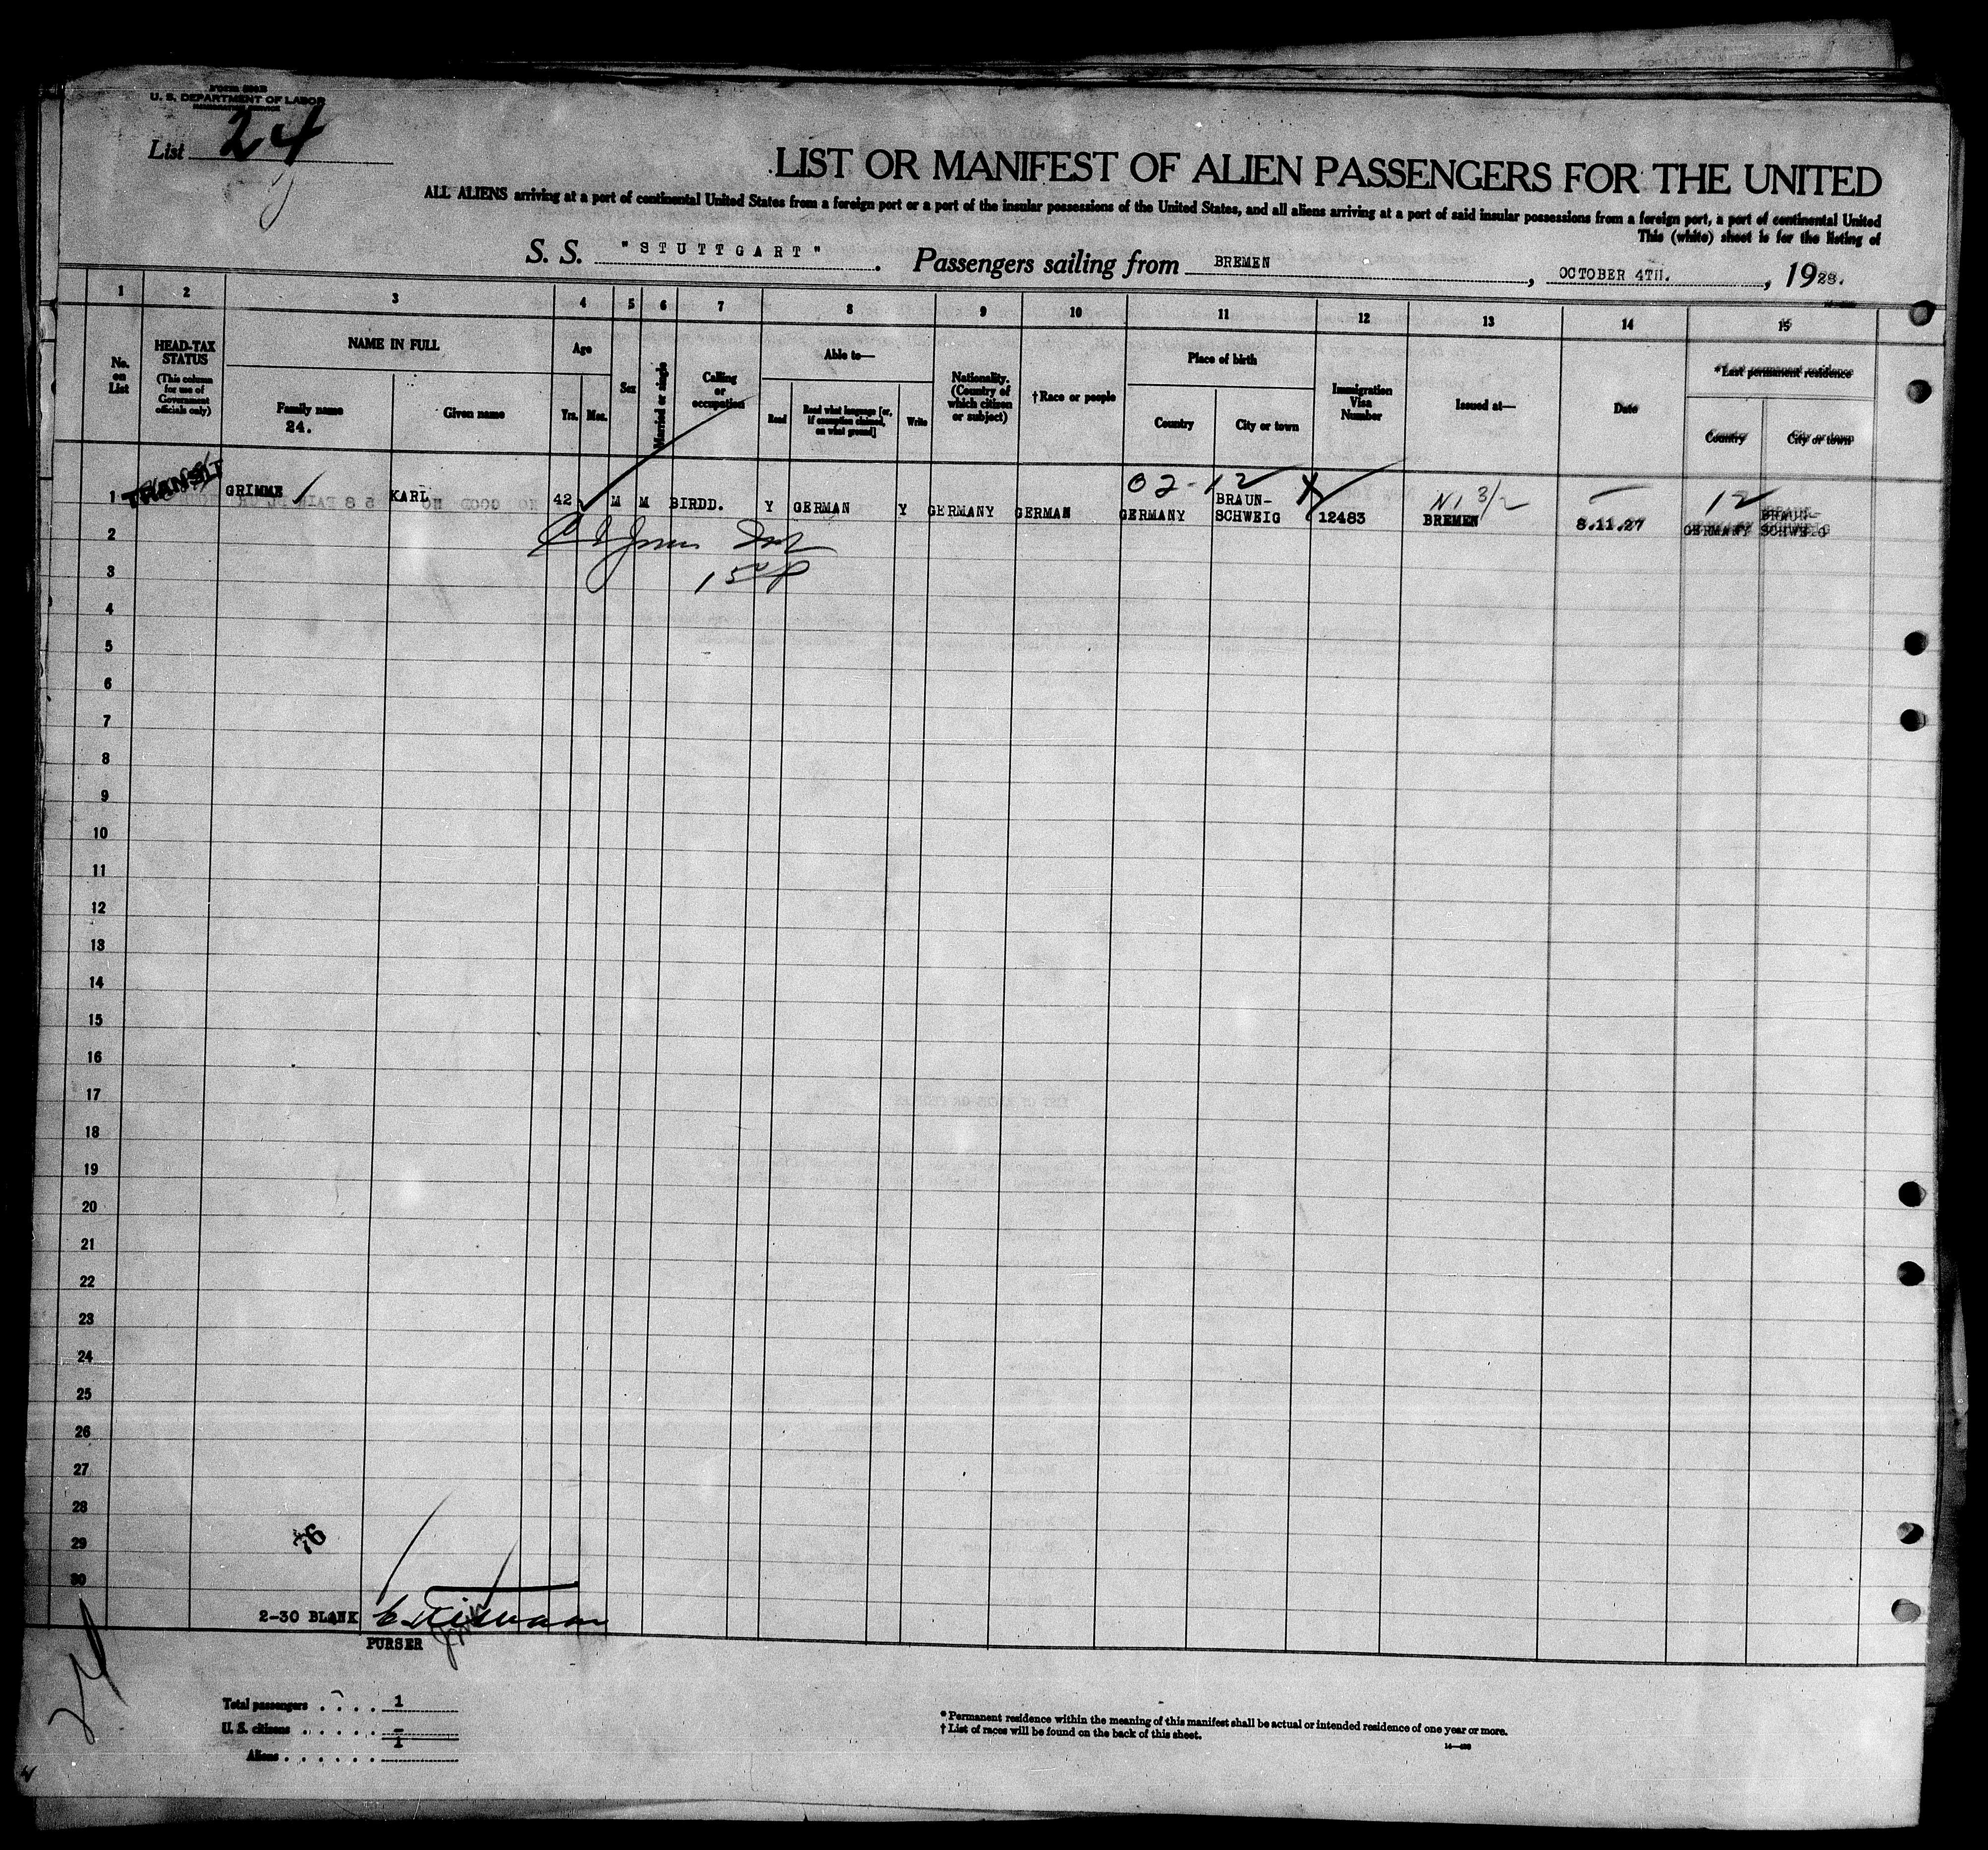 U. S. DEPARTMENT OF LABOR
List 24
LIST OR MANIFEST OF ALIEN PASSENGERS FOR THE UNITED
ALL ALIENS arriving at a port of continental United States from a foreign port or a port of the insular possessions of the United States, and all aliens arriving at a port of said insular possessions from a foreign port, a port of continental United
This (white) sheet is for the listing of
S. S. "STUTTGART". Passengers sailing from BREMEN, OCTOBER 4TH., 1928.
1 2 3 4 5 6 7 8 9 10 11 12 13 14 15
No. on List
HEAD-TAX STATUS
(This column for use of Government officials only)
NAME IN FULL
Family name
24.
Given name
Age
Yrs. Mos.
Sex
Married or single
Calling or occupation
Able to—
Read
Read what language [or, if exemption claimed, on what ground]
Write
Nationality. (Country of which citizen or subject)
†Race or people
Place of birth
Country
City or town
Immigration Visa Number
Issued at—
Date
*Last permanent residence
Country
City or town
02-12
NI 3/2
12
1 TRANSIT GRIMME KARL 42 M M BIRDD. Y GERMAN Y GERMANY GERMAN GERMANY BRAUN-SCHWEIG 12483 BREMEN 8.11.27 GERMANY BRAUN-SCHWEIG
2
3
4
5
6
7
8
9
10
11
12
13
14
15
16
17
18
19
20
21
22
23
24
25
26
27
28
29
30
76
2-30 BLANK
PURSER
24
Total passengers . . . . 1
U. S. citizens . . . . . -
Aliens . . . . . . 1
*Permanent residence within the meaning of this manifest shall be actual or intended residence of one year or more.
†List of races will be found on the back of this sheet.